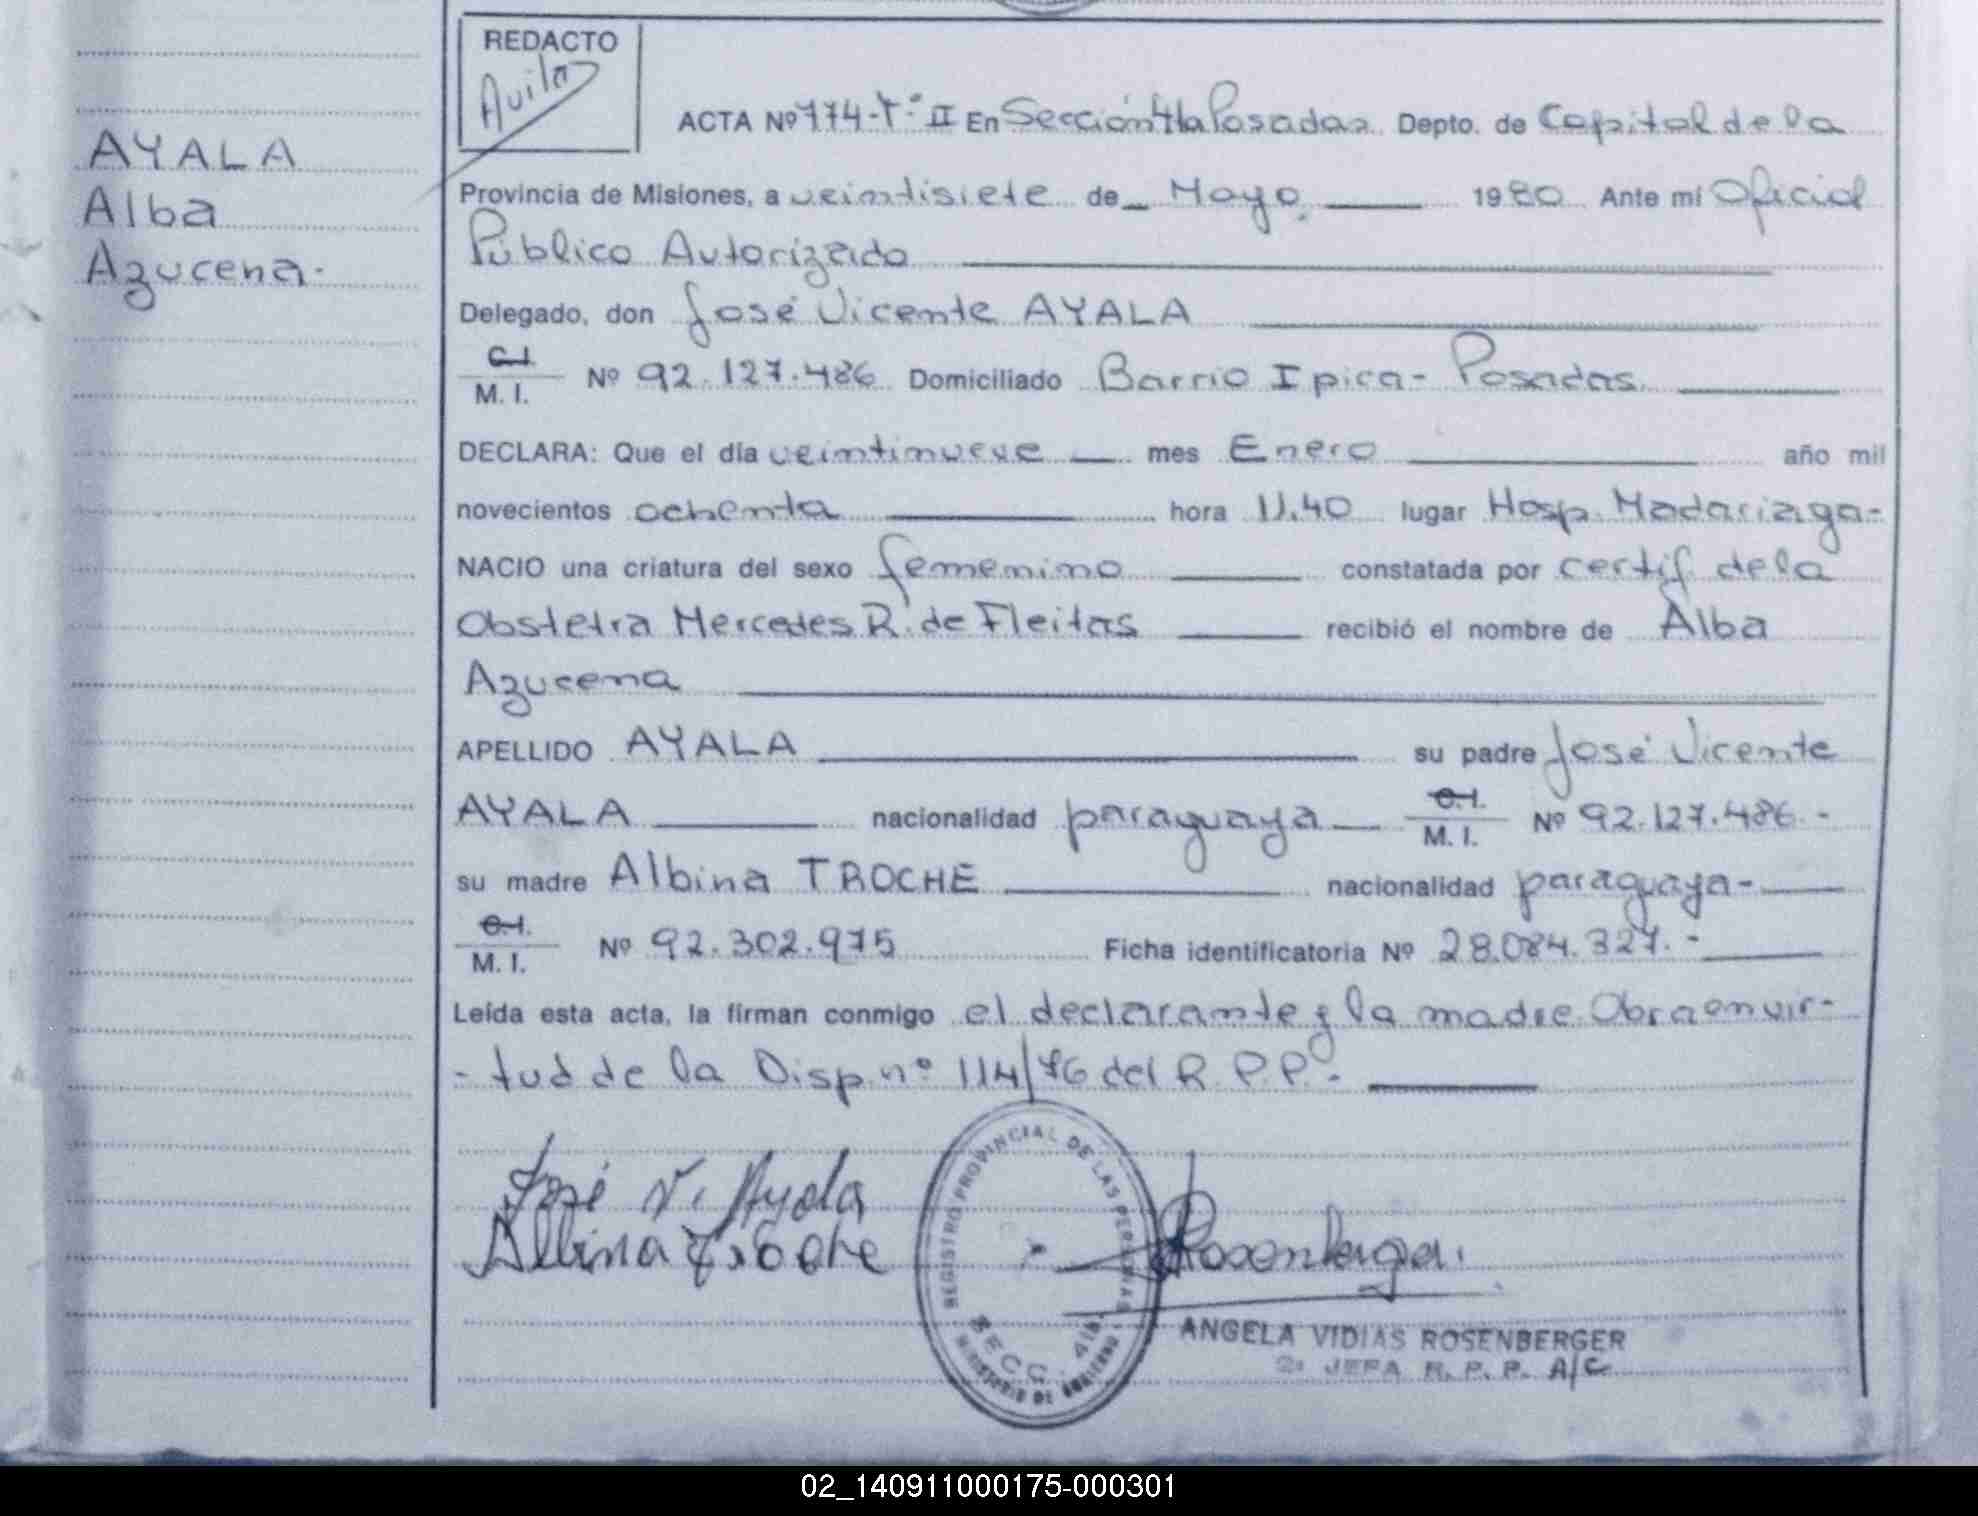 REDACTO
Avila
AYALA
Alba
Azucena.
ACTA Nº 774-Tº II En Sección 4ta Posadas Depto. de Capital de la
Provincia de Misiones, a veintisiete de Mayo 1980 Ante mi Oficial
Público Autorizado
Delegado, don José Vicente AYALA
C.I. / M. I. Nº 92.127.486 Domiciliado Barrio Ipica - Posadas
DECLARA: Que el día veintinueve mes Enero año mil
novecientos ochenta hora 11.40 lugar Hosp. Madariaga-
NACIO una criatura del sexo femenino constatada por certif. de la
Obstetra Mercedes R. de Fleitas recibió el nombre de Alba
Azucena
APELLIDO AYALA su padre José Vicente
AYALA nacionalidad paraguaya C.I. / M. I. Nº 92.127.486.-
su madre Albina TROCHE nacionalidad paraguaya-
C.I. / M. I. Nº 92.302.975 Ficha identificatoria Nº 28.084.327.-
Leída esta acta, la firman conmigo el declarante y la madre. Obra en vir-
-tud de la Disp. nº 114/76 del R.P.P.-
José V. Ayala
Albina Troche
REGISTRO PROVINCIAL DE LAS PERSONAS
SECC. 4ta
MINISTERIO DE GOBIERNO
Rosenberger
ANGELA VIDIAS ROSENBERGER
2ª JEFA R. P. P. A/C
02_140911000175-000301